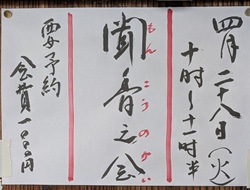 四月二十八日(火)
十時〜十一時半
聞香之会
もんこうのかい
要予約
会費一〇〇〇円